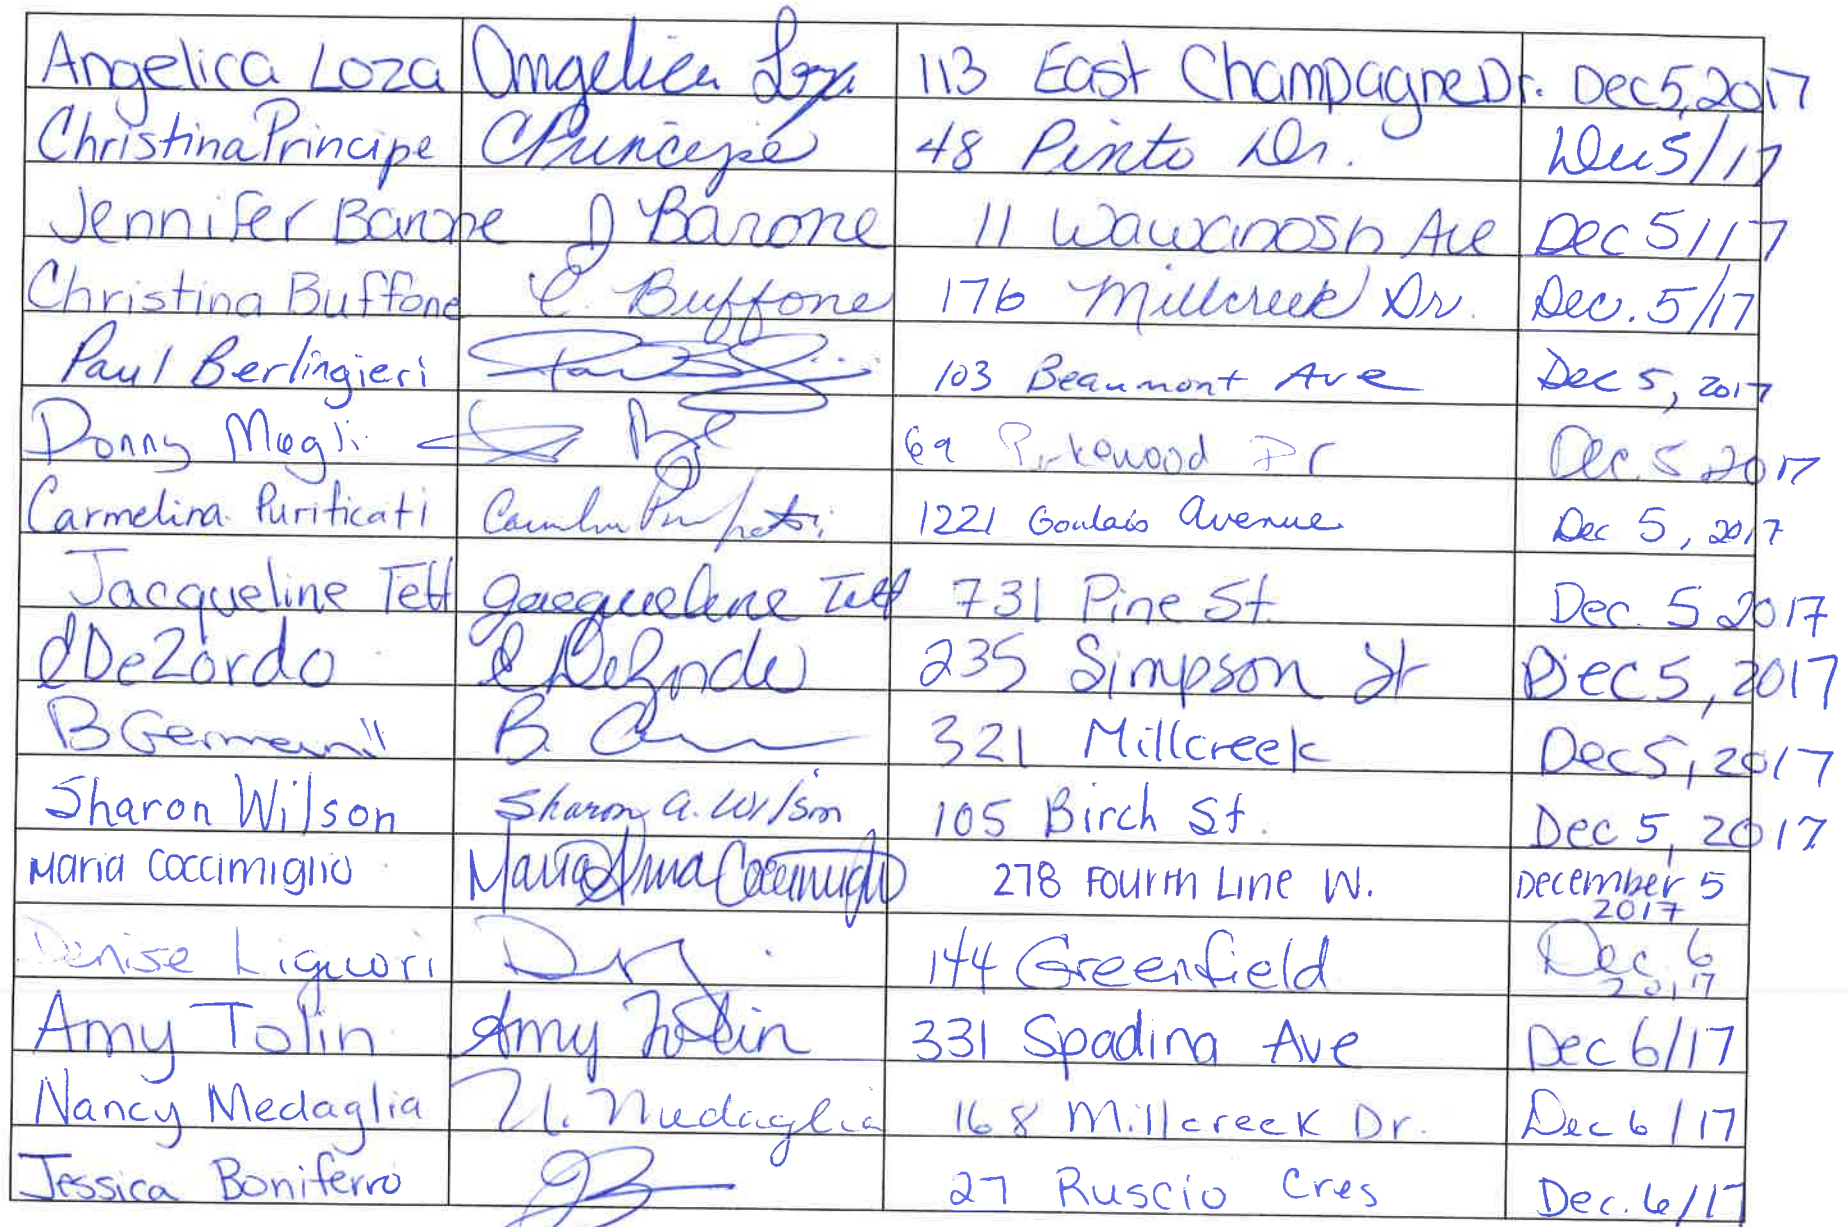 Angelica Loza Angelica Loza 113 East Champagne Dr. Dec 5, 2017
Christina Principe C Principe 48 Pinto Dr. Dec 5/17
Jennifer Barone J Barone 11 Wawanosh Ave Dec 5/17
Christina Buffone C. Buffone 176 Millcreek Dr. Dec. 5/17
Paul Berlingieri 103 Beaumont Ave Dec 5, 2017
Donny Muglı 69 Dr Dec. 5 2017
Carmelina Purificati 1221 Goulais Avenue Dec 5, 2017
Jacqueline Tett Jacqueline Tett 731 Pine St. Dec. 5 2017
C DeZordo C DeZordo 235 Simpson St Dec 5, 2017
B B. 321 Millcreek Dec 5, 2017
Sharon Wilson Sharon A. Wilson 105 Birch St. Dec 5, 2017
Maria Coccimiglio Maria Anna Coccimiglio 278 Fourth Line W. December 5 2017
Denise Liguori 144 Greenfield Dec. 6 2017
Amy Tolin Amy Tolin 331 Spadina Ave Dec 6/17
Nancy Medaglia N. Medaglia 168 Millcreek Dr. Dec 6/17
Jessica Boniferro JB 27 Ruscio Cres Dec. 6/17